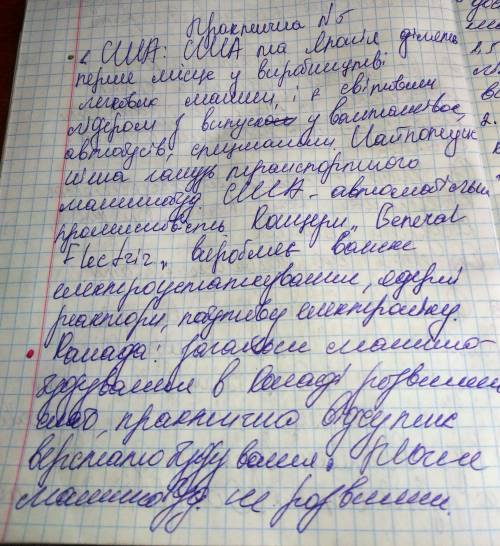 Практична №5
США: США та Японія ділять
перше місце у виробництві
легкових машин, і є світовим
лідером у випуску у вантажівок,
автобусів, спецмашин. Найпотуж
ніша галузь транспортного
машинобуд. США - автомобільна
промисловість. Концерн „General
Electric„ виробляє важке
електроустаткування, ядерні
реактори, побутову електроніку.
Канада: загалом машино-
будування в Канаді розвинене
слаб, практично відсутнє
верстатобудування.
машинобуд. не розвинен.